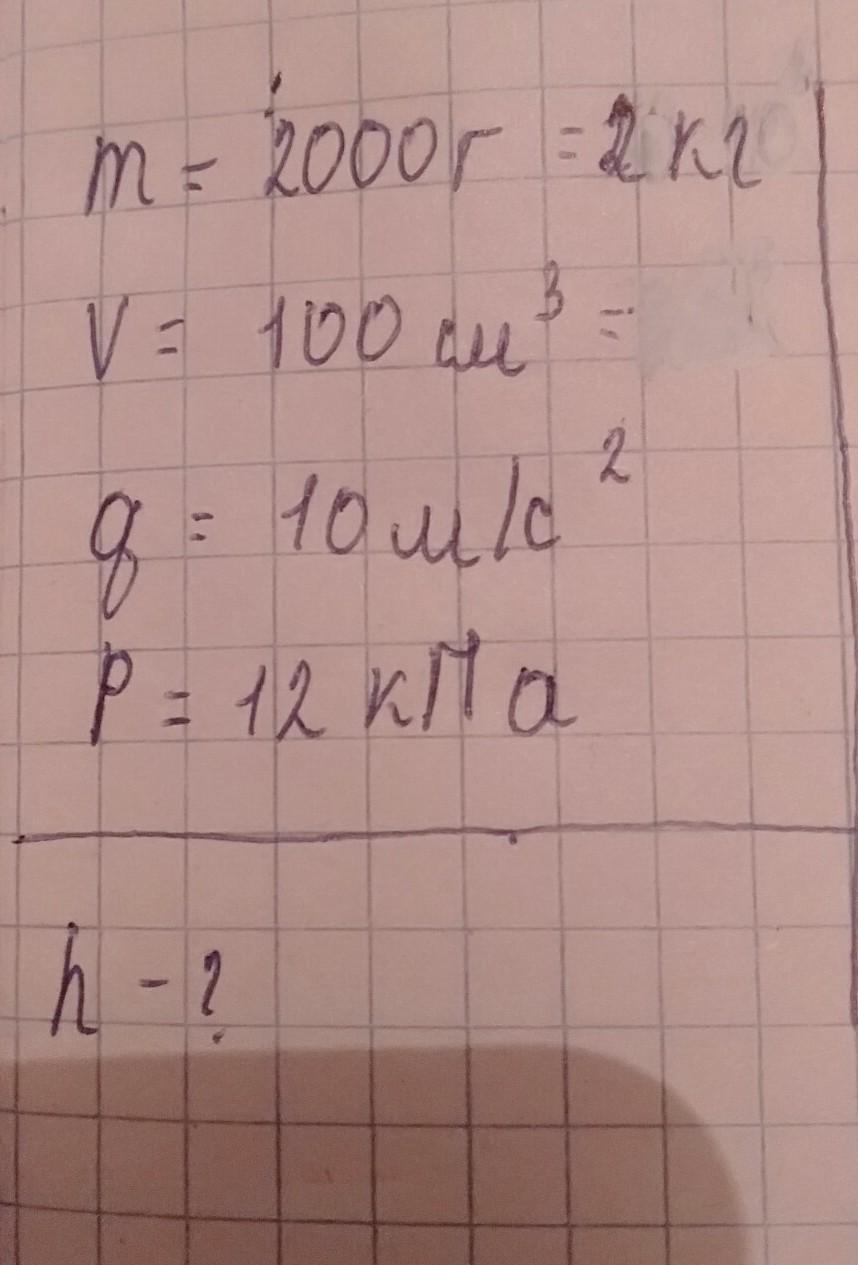 m = 2000г = 2 кг
V = 100 см³ =
g = 10 м/с²
P = 12 кПа
h - ?